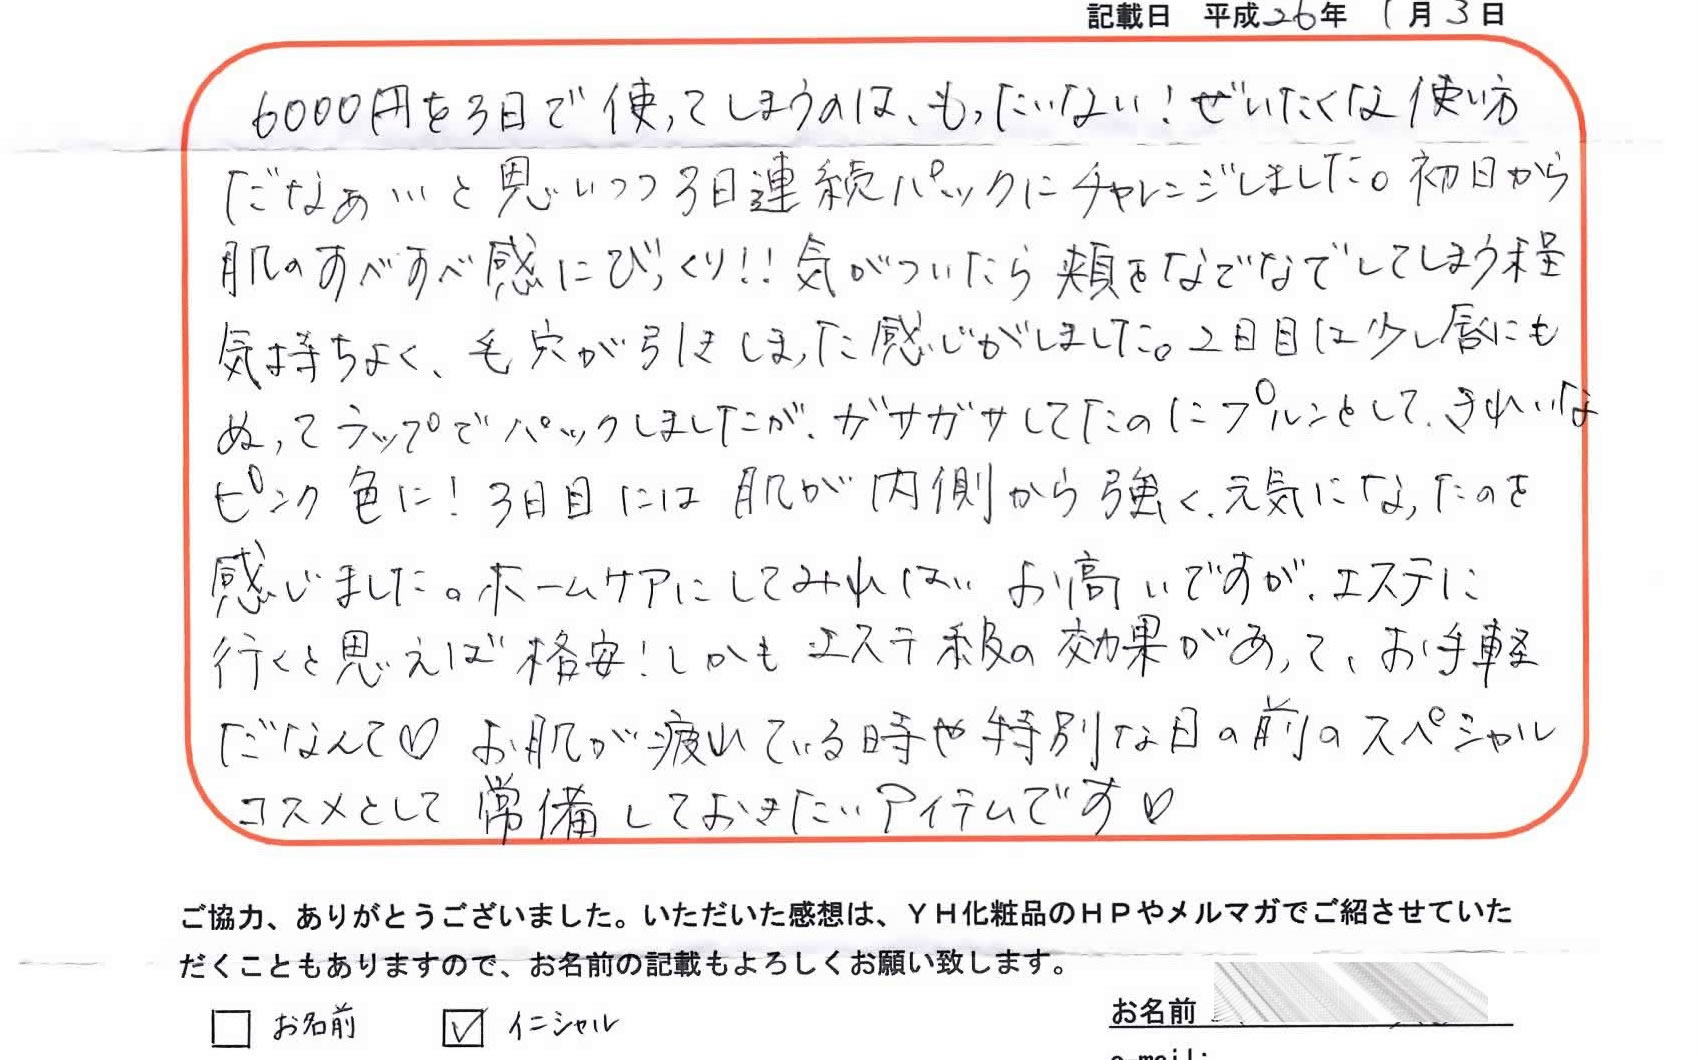 記載日 平成26年 1月3日
6000円を3日で使ってしまうのは、もったいない！ぜいたくな使い方
だなぁ…と思いつつ3日連続パックにチャレンジしました。初日から
肌のすべすべ感にびっくり!!気がついたら頬をなでなでしてしまう程
気持ちよく、毛穴が引きしまった感じがしました。2日目は少し唇にも
ぬってラップでパックしましたが、ガサガサしてたのにプルンとして、きれいな
ピンク色に！3日目には肌が内側から強く、元気になったのを
感じました。ホームケアにしてみればお高いですが、エステに
行くと思えば格安！しかもエステ級の効果があって、お手軽
だなんて♡ お肌が疲れている時や特別な日の前のスペシャル
コスメとして常備しておきたいアイテムです♡
ご協力、ありがとうございました。いただいた感想は、ＹＨ化粧品のＨＰやメルマガでご紹させていた
だくこともありますので、お名前の記載もよろしくお願い致します。
□ お名前 ☑ イニシャル
お名前
e-mail: